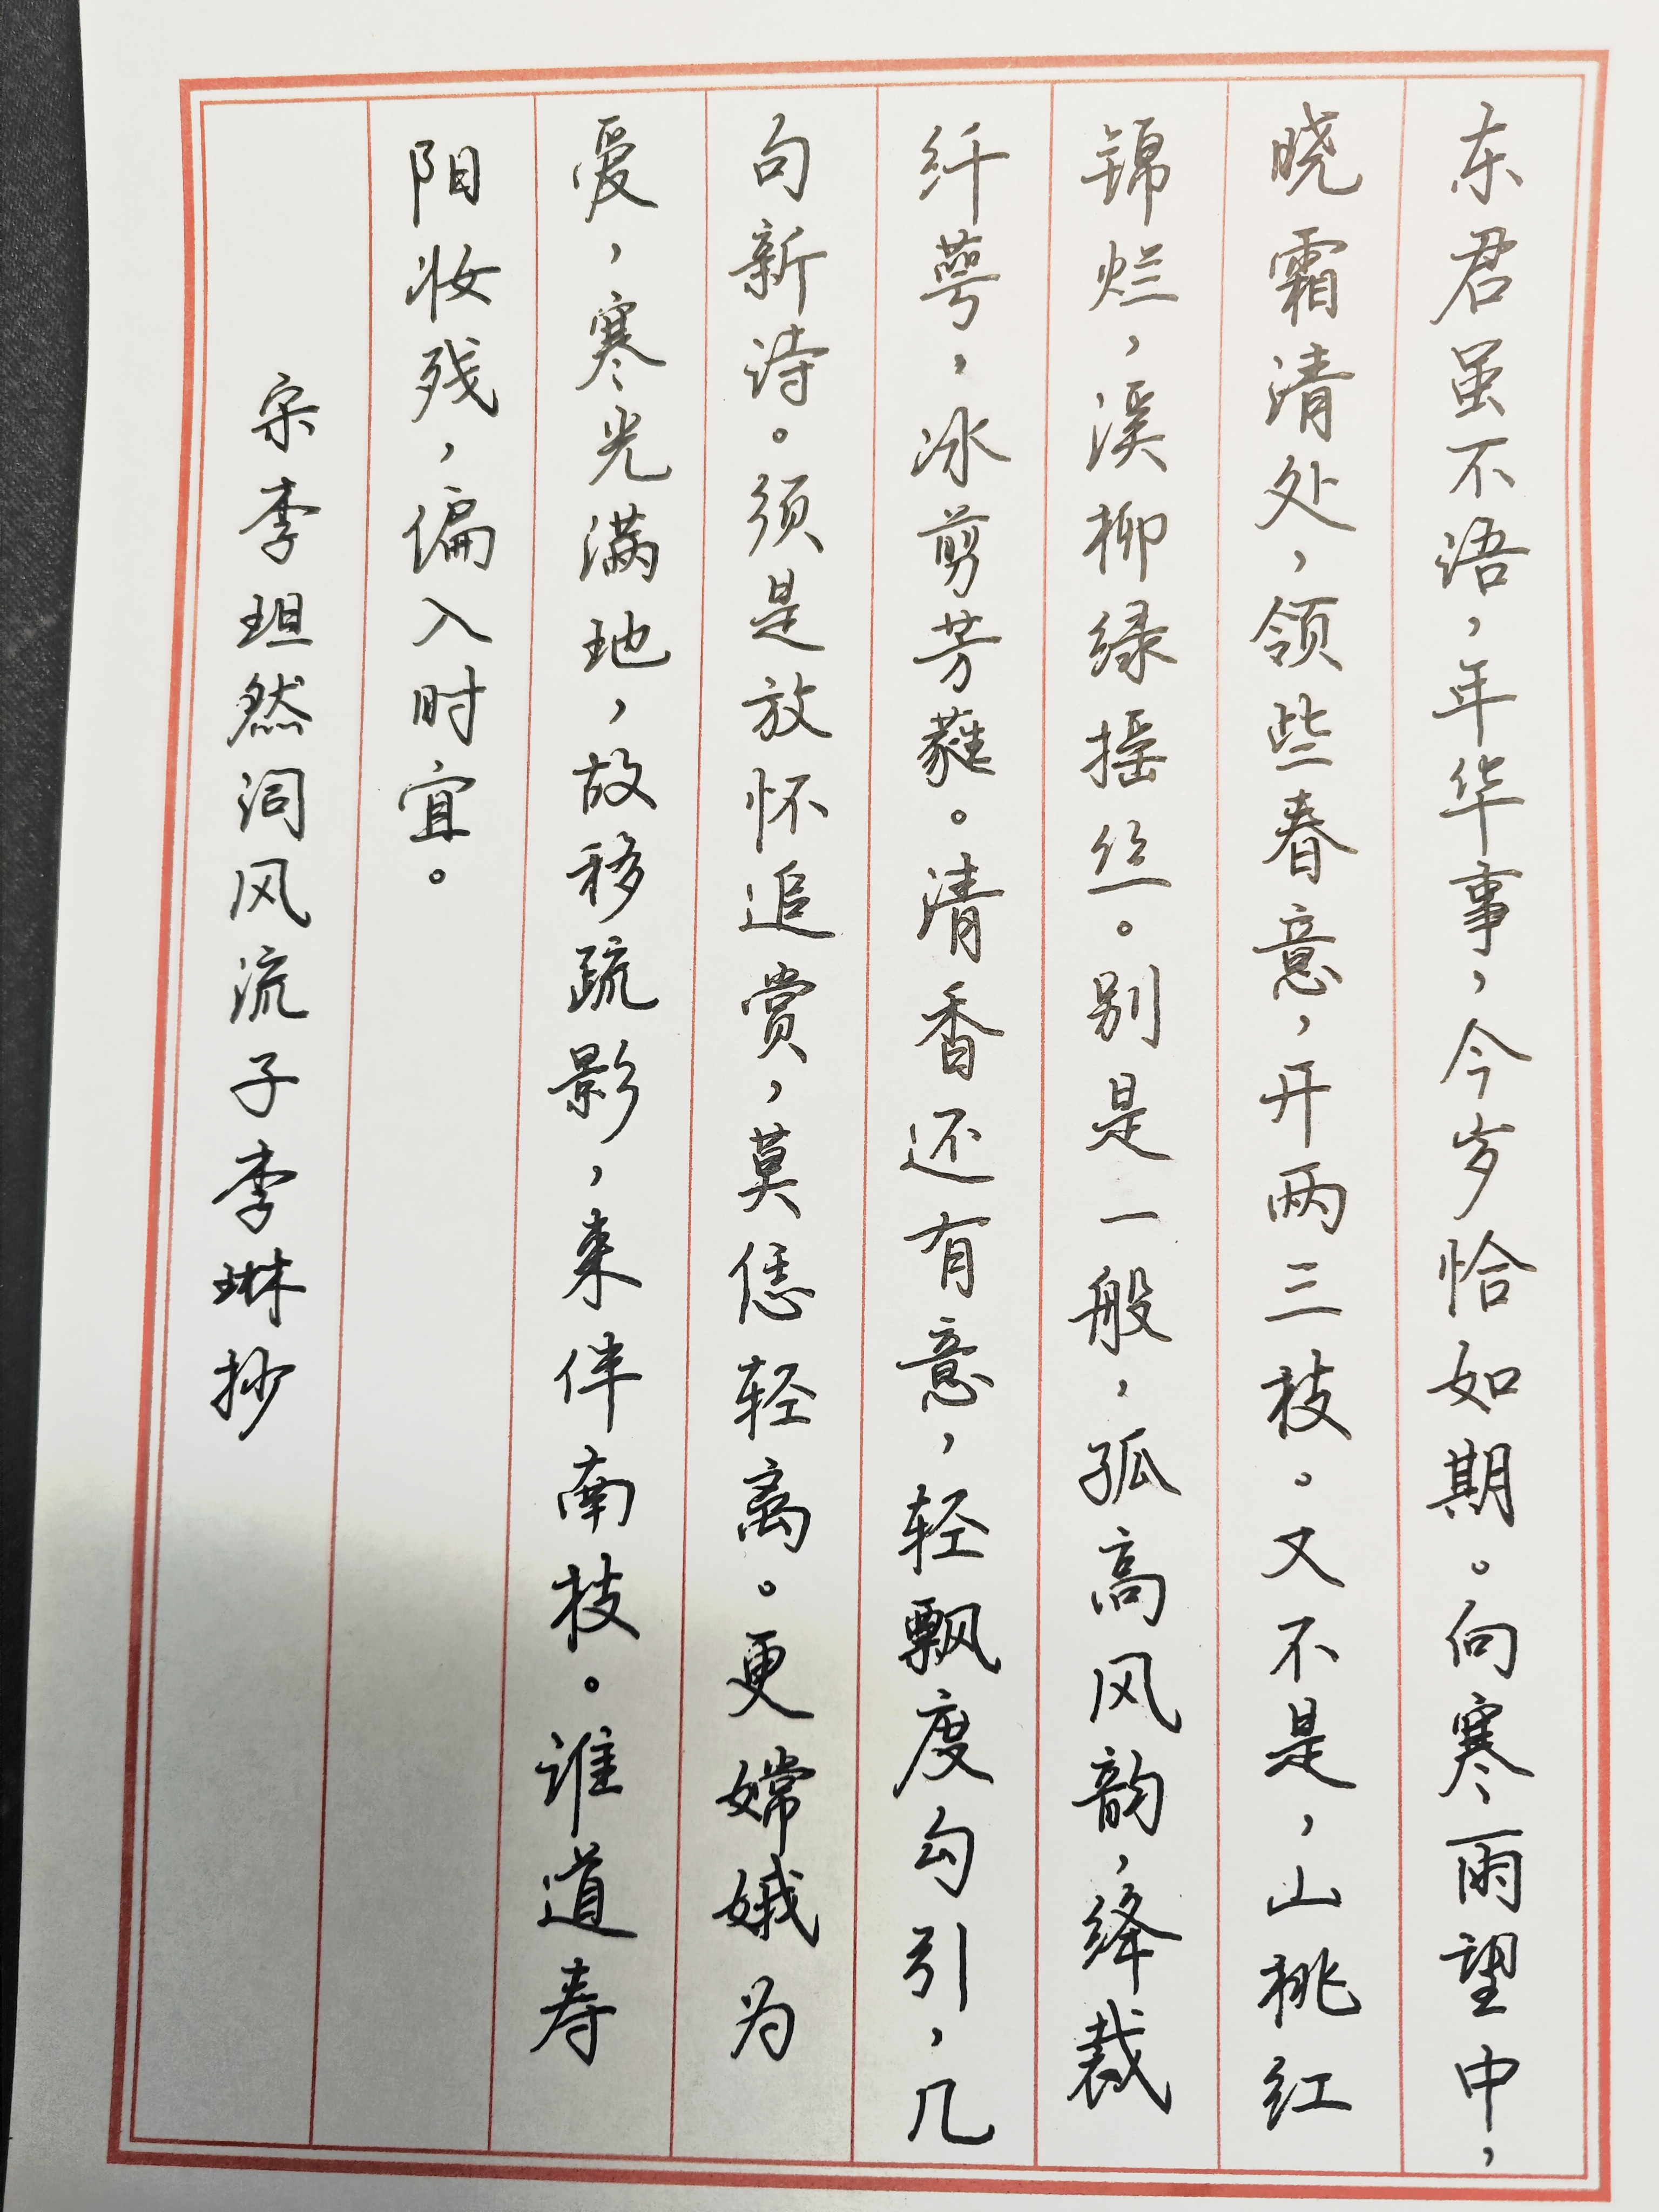 东君虽不语，年华事，今岁恰如期。向寒雨望中，
晓霜清处，领些春意，开两三枝。又不是，山桃红
锦烂，溪柳绿摇丝。别是一般，孤高风韵，绛裁
纤萼，冰剪芳蕤。清香还有意，轻飘度勾引，几
句新诗。须是放怀追赏，莫恁轻离。更嫦娥为
爱，寒光满地，故移疏影，来伴南枝。谁道寿
阳妆残，偏入时宜。
宋李坦然词风流子李琳抄